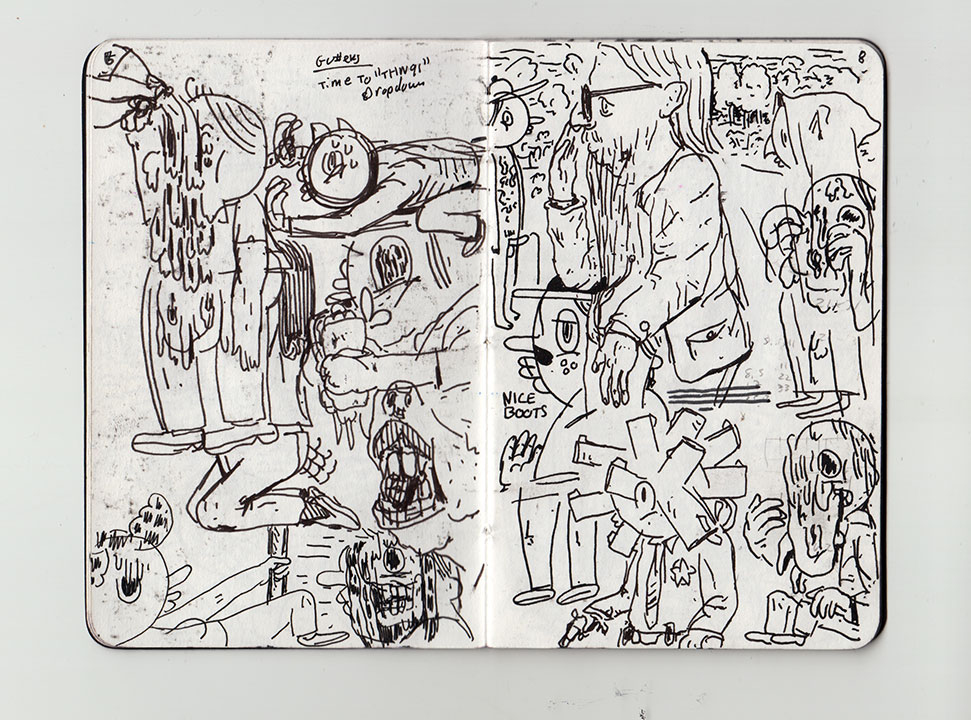 Gutters
TIME TO "THNGI"
Dropdown
8
NICE
BOOTS